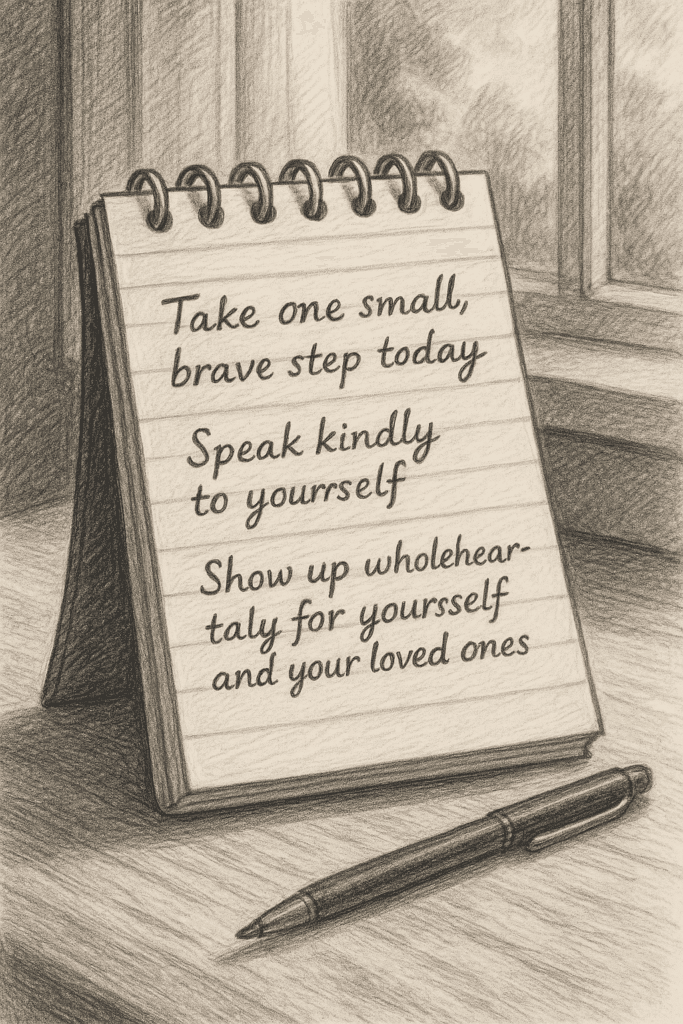 Take one small,
brave step today
Speak kindly
to yourrself
Show up wholehear-
taly for yoursself
and your loved ones